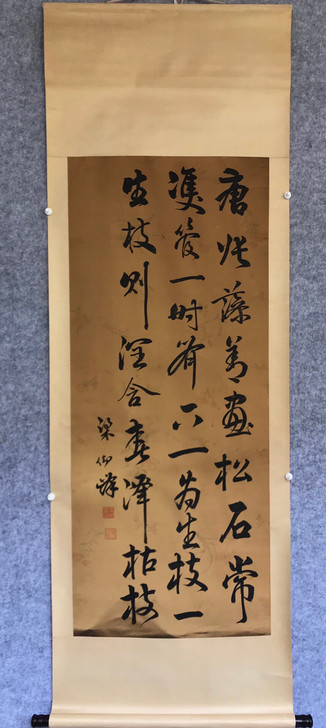 唐張藻善畫松石常
雙管一時齊下一為生枝一
生枝则潤含春澤枯枝
梁